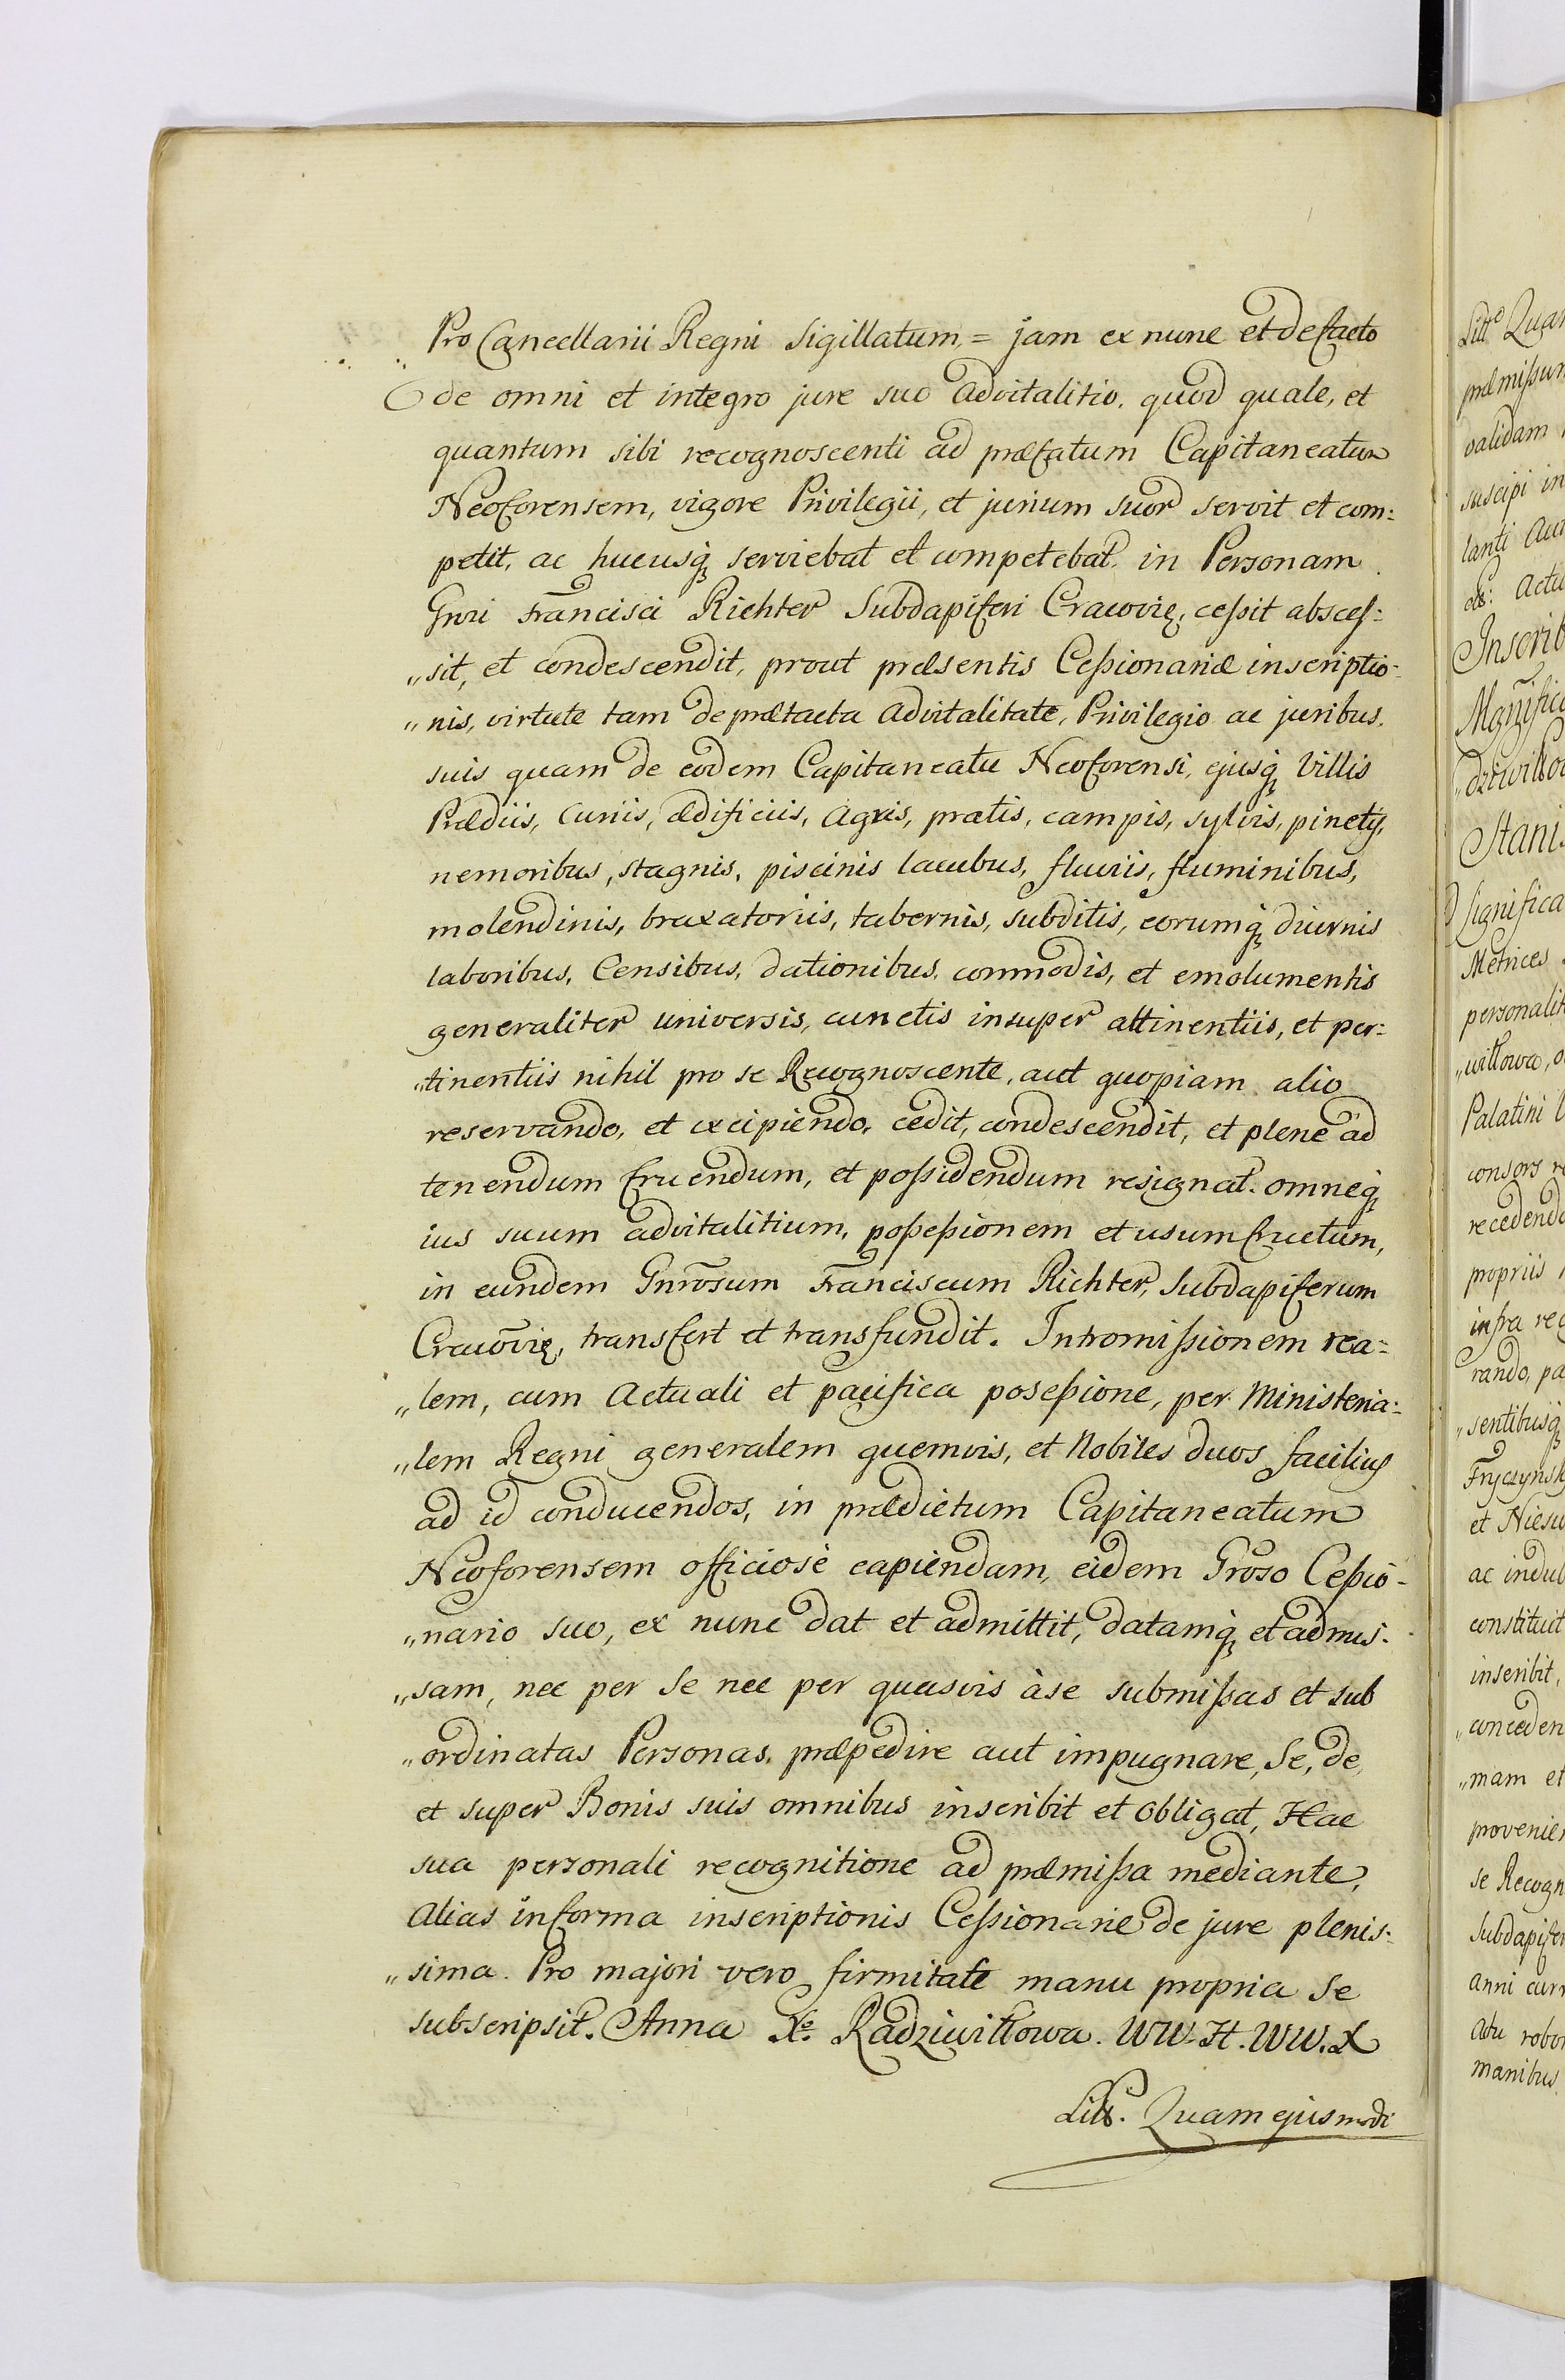 Pro Cancellarii Regni Sigillatum, = jam ex nunc et de facto
de omni et integro jure suo Advitalitio, quod quale, et
quantum sibi recognoscenti ad præfatum Capitaneatum
Neoforensem, vigore Privilegii, et jurium suor servit et com:
petit, ac hucusq, serviebat et competebat, in Personam
Gnri Francisci Richter Subdapiferi Cracovię, cessit absces:
„sit, et condescendit, prout præsentis Cessionariæ inscriptio-
„nis, virtute tam de prætacta Advitalitate, Privilegio ac juribus
suis quam de eodem Capitaneatu Neoforensi, ejusq, Villis
Prædiis, Curiis, ædificiis, Agris, pratis, campis, sylvis, pinetis,
nemoribus, stagnis, piscinis lacubus, fluviis, fluminibus,
molendinis, braxatoriis, tabernis, subditis, eorumq, diurnis
laboribus, Censibus, dationibus, commodis, et emolumentis
generaliter universis, cunctis insuper attinentiis, et per:
„tinentiis nihil pro se Recognoscente, aut quopiam alio
reservando, et excipiendo, cedit, condescendit, et plenè ad
tenendum fruendum, et possidendum resignat. omneq,
ius suum advitalitium, possessionem et usumfructum,
in eundem Gnrosum Franciscum Richter, Subdapiferum
Cracovię, transfert et transfundit. Intromissionem rea:
„lem, cum Actuali et pacifica posessione, per Ministeria:
„lem Regni generalem quemvis, et Nobiles duos facilius
ad id conducendos, in prædictum Capitaneatum
Neoforensem officiosè capiendam, eidem Groso Cessio-
„nario suo, ex nunc dat et admittit, datamq, et admis:
„sam, nec per se nec per quasvis à se submissas et sub
„ordinatas Personas, præpedire aut impugnare, Se, de,
et super Bonis suis omnibus inscribit et obligat, Hac
sua personali recognitione ad præmissa mediante,
Alias in forma inscriptionis Cessionarie de jure plenis:
„sima. Pro majori vero firmitate manu propria se
subscripsit. Anna Xe. Radziwiłłowa. WW. H. WW. X
Litt. Quam ejusmodi
Litte Quam
præmissum
validam
suscipi in
Inscrib
Stanis
significa
Metrices
personalit
„wiłłowa, o
Palatini
consors re
recedendo
propriis
infra rec
rando, pa
„sentibusq,
Fryczynsk
et Niesu
ac indub
constituit
inscribit,
„conceden
„mam et
provenien
se Recogn
Subdapifer
anni curr
Actu robor
manibus